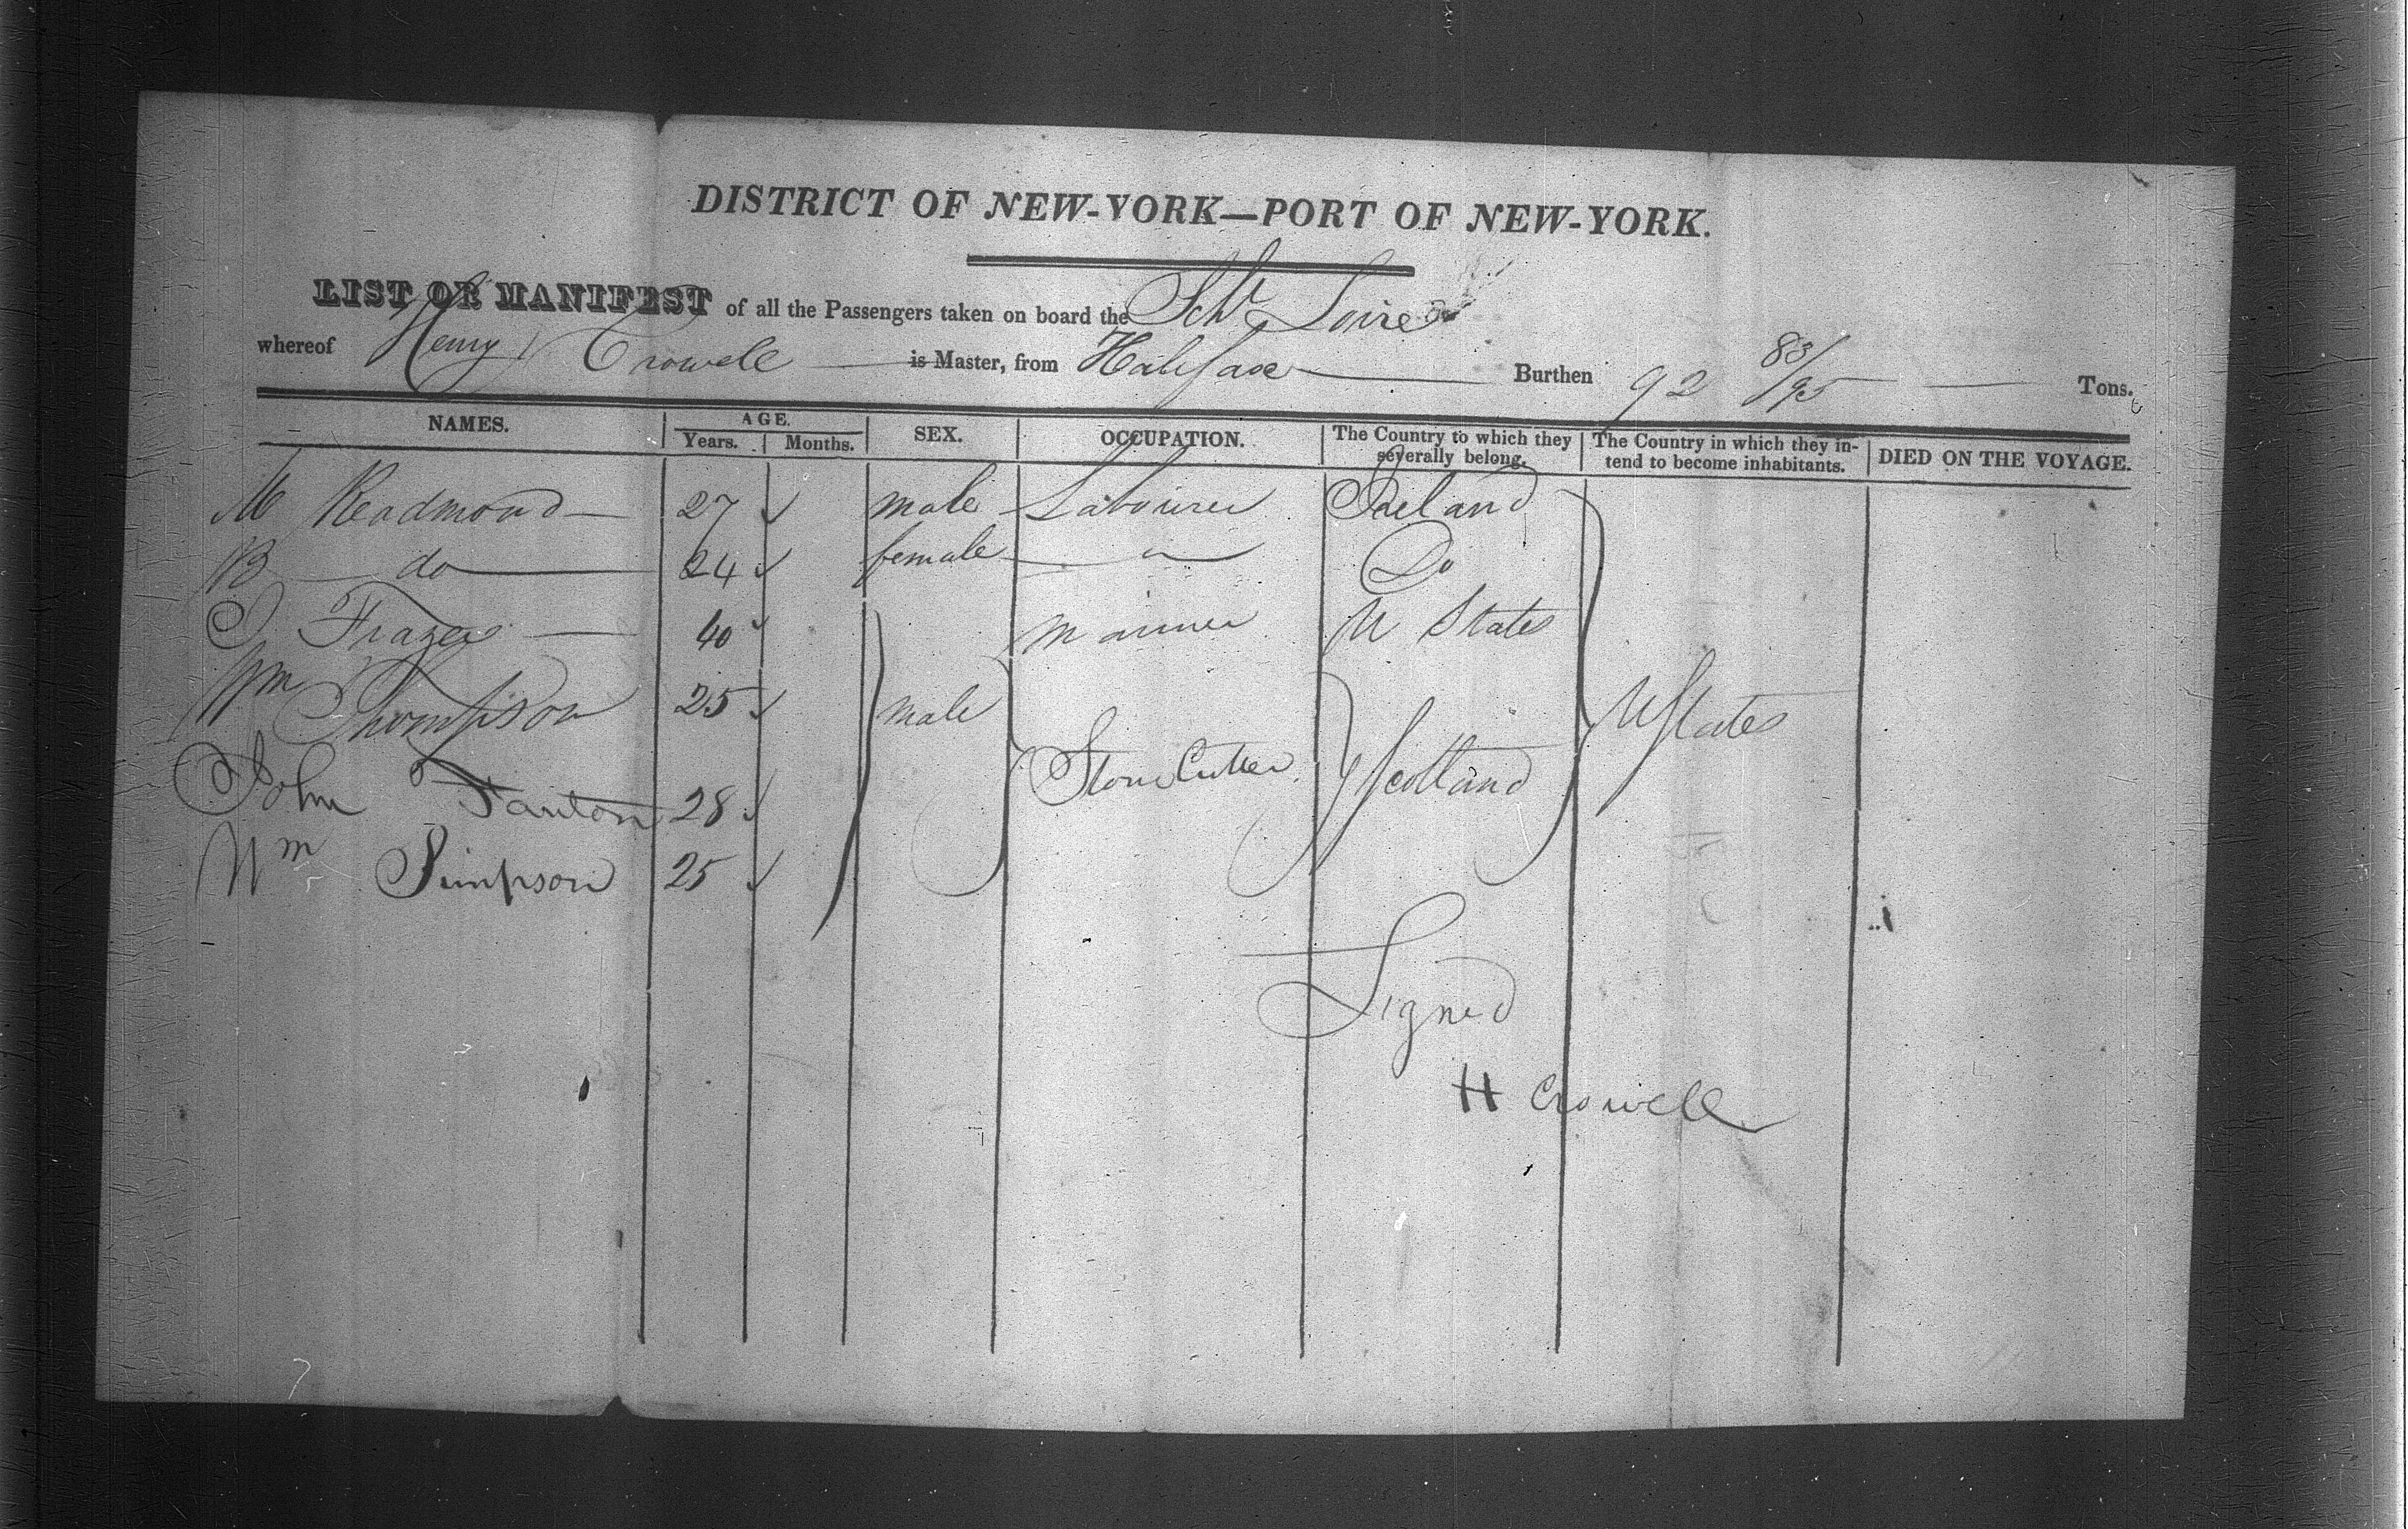 DISTRICT OF NEW-YORK—PORT OF NEW-YORK.
LIST OR MANIFEST of all the Passengers taken on board the Schr Loire
whereof Henry Crowell is Master, from Halifax Burthen 92 83/95 Tons.
NAMES. AGE. Years. Months. SEX. OCCUPATION. The Country to which they severally belong. The Country in which they intend to become inhabitants. DIED ON THE VOYAGE.
M Readmond 27 male Labourer Ireland
B do 24 female Do
Frazer 40 mariner U States
Wm Thompson 25 male U States
John 28 Stone Cutter Scotland
Wm Simpson 25
Signed
H Crowell